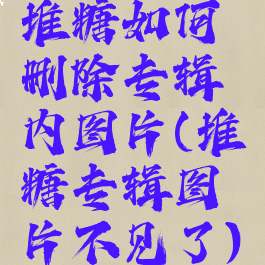 堆糖如何
删除专辑
内图片(堆
糖专辑图
片不见了)